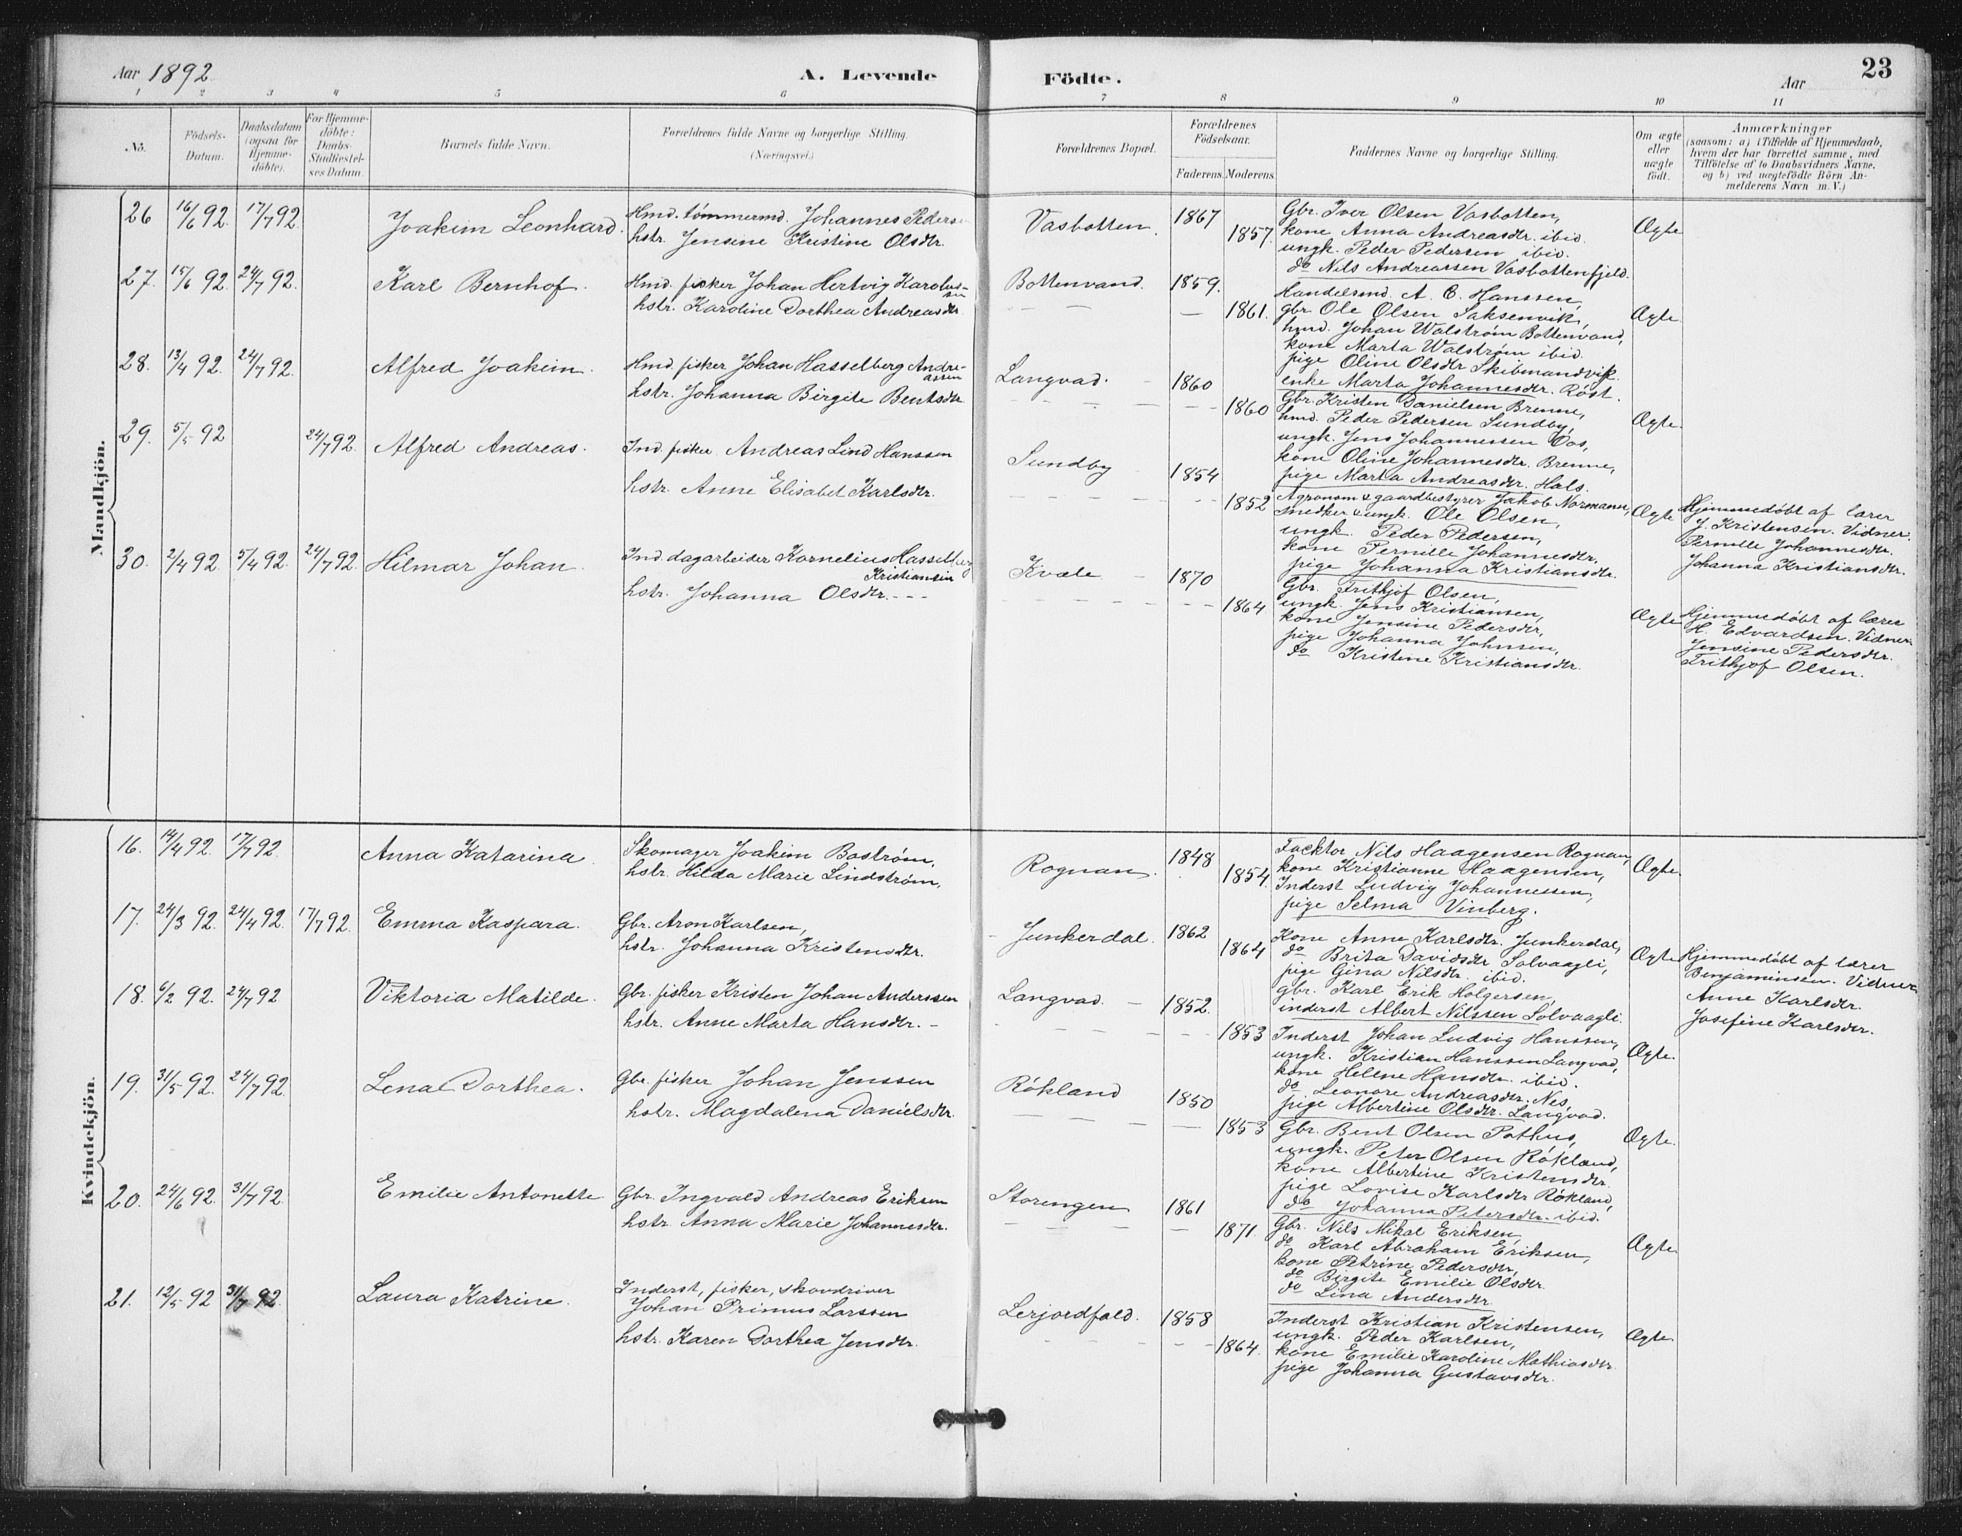 Aar 1892.
A. Levende
Födte.
Aar
23
1 2 3 4 5 6 7 8 9 10 11
No.
Födsels-Datum.
Daabsdatum (ogsaa for Hjemme-döbte).
For Hjemme-döbte: Daabs-Stadfæstel-ses Datum.
Barnets fulde Navn.
Forældrenes fulde Navne og borgerlige Stilling.
(Næringsvei.)
Forældrenes Bopæl.
Forældrenes Födselsaar.
Faderens. Moderens.
Faddernes Navne og borgerlige Stilling.
Om ægte eller uægte födt.
Anmærkninger
(saasom: a) i Tilfælde af Hjemmedaab,
hvem der har forrettet samme, med
Tilföielse af to Daabsvidners Navne,
og b) ved uægtefödte Börn An-
melderens Navn m. V.)
Mandkjön.
26 16/6 92. 17/7 92. Joakim Leonhard.
Hmd. tømmermd. Johannes Peders
hstr. Jensine Kristine Olsdtr.
Vasbotten. 1867 1857.
Gbr. Iver Olsen Vasbotten,
kone Anna Andreasdtr. ibid.
ungk. Peder Pedersen ibid.
do Nils Andreassen Vasbottenfjeld.
Ægte
27. 15/6 92. 24/7 92. Karl Bernhof.
Hmd. fisker Johan Hertvig Karolus-
sen
hstr. Karoline Dorthea Andreasdtr.
Bottenvand. 1859. 1861.
Handelsmd. A. C. Hanssen,
gbr. Ole Olsen Saksenvik,
hmd. Johan Walstrøm Bottenvand,
kone Marta Walstrøm ibid.
pige Oline Olsdtr Skibmandvik.
enke Marta Johannesdtr. Røst.
Ægte
28. 13/4 92. 24/7 92. Alfred Joakim.
Hmd. fisker Johan Hasselberg Andre-
assen
hstr. Johanna Birgite Bentsdtr
Langvad. 1860 1860
Gbr. Kristen Danielsen Brenne,
hmd. Peder Pedersen Sundby,
ungk. Jens Johannessen Vos,
kone Oline Johannesdtr. Brenne,
pige Marta Andreasdtr. Hals.
Ægte
29. 5/5 92 24/7 92. Alfred Andreas.
Ind. fisker Andreas Lind Hanssen
hstr. Anne Elisabet Karlsdtr.
Sundby 1854 1852
Agronom & gaardbestyrer Jakob Normann,
snedker & ungk. Ole Olsen,
ungk. Peder Pedersen,
kone Pernille Johannesdtr.
pige Johanna Kristiansdtr.
Ægte
Hjemmedøbt af lærer
J. Kristensen. Vidner.
Pernille Johannesdtr.
Johanna Kristiansdtr.
30. 2/4 92 5/4 92. 24/7 92. Hilmar Johan.
Ind. dagarbeider Kornelius Hasselberg
Kristiansen
hstr. Johanna Olsdtr.
Kvæle 1870 1864
Gbr. Frithjof Olsen,
ungk. Jens Kristiansen,
kone Jensine Pedersdtr,
pige Johanna Johnsen,
do Kristine Kristiansdtr.
Ægte
Hjemmedøbt af lærer
H. Edvardsen. Vidner.
Jensine Pedersdtr.
Frithjof Olsen.
Kvindekjön.
16. 14/4 92. 17/7 92. Anna Katarina.
Skomager Joakim Boström,
hstr. Hilda Marie Lindström,
Rognan. 1848 1854.
Facktor Nils Haagensen Rognan,
kone Kristianne Haagensen,
Inderst Ludvig Johannessen,
pige Selma Vinberg.
Ægte.
17. 24/3 92. 24/4 92. 17/7 92. Emma Kaspara.
Gbr. Aron Karlsen,
hstr. Johanna Kristensdtr.
Junkerdal. 1862 1864
Kone Anne Karlsdtr. Junkerdal,
do Brita Davidsdtr Solvaagli,
pige Gina Nilsdtr. ibid.
gbr. Karl Erik Holgersen,
inderst Albert Nilssen Solvaagli.
Ægte
Hjemmedøbt af lærer
Benjaminsen. Vidner
Anne Karlsdtr.
Josefine Karlsdtr.
18. 6/2 92. 24/7 92 Viktoria Matilde.
Gbr. fisker Kristen Johan Anderssen
hstr. Anne Marta Hansdtr.
Langvad. 1852. 1853
Inderst Johan Ludvig Hanssen,
ungk. Kristian Hanssen Langvad,
kone Hellne Hansdtr. ibid.
do Leonore Andreasdtr. Nes,
pige Albertine Olsdtr. Langvad.
Ægte.
19. 31/5 92. 24/7 92. Lena Dorthea.
Gbr. fisker Johan Jenssen
hstr. Magdalena Danielsdtr.
Røkland 1850 1853
Gbr. Bent Olsen Pothus,
ungk. Peter Olsen Røkland,
kone Albertine Kristensdtr.
pige Lovise Karlsdtr Røkland,
do Johanna Petersdtr. ibid.
Ægte.
20. 24/6 92. 31/7 92. Emilie Antonette
Gbr. Ingvald Andreas Eriksen
hstr. Anna Marie Johannesdtr.
Storengen 1861 1871.
Gbr. Nils Mikal Eriksen,
do Karl Abraham Eriksen,
kone Petrine Pedersdtr,
do Birgite Emilie Olsdtr.
do Lina Andersdtr.
Ægte
21. 12/5 92 31/7 92. Laura Katrine.
Inderst, fisker, skovdriver
Johan Primus Larssen
hstr. Karen Dorthea Jensdtr.
Lerjordfald. 1858 1864.
Inderst Kristian Kristensen,
ungk. Peder Karlsen,
kone Emilie Karoline Mathiasdtr.
pige Johanna Gustavsdtr.
Ægte.